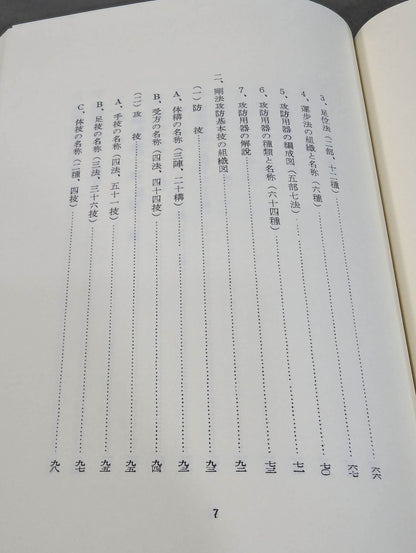 3、足位法(二部、十二種)……六六
4、運歩法の組織と名称(六種)……六七
5、攻防用器の編成図(五部七法)……七〇
6、攻防用器の種類と名称(六十四種)……七一
7、攻防用器の解説……七三
二、剛法攻防基本技の組織図……九二
(一)防　技……九三
A、体構の名称(三陣、二十構)……九三
B、受方の名称(四法、四十四技)……九四
(二)攻　技……九五
A、手技の名称(四法、五十一技)……九五
B、足技の名称(三法、三十六技)……九七
C、体技の名称(二種、四技)……九八
7